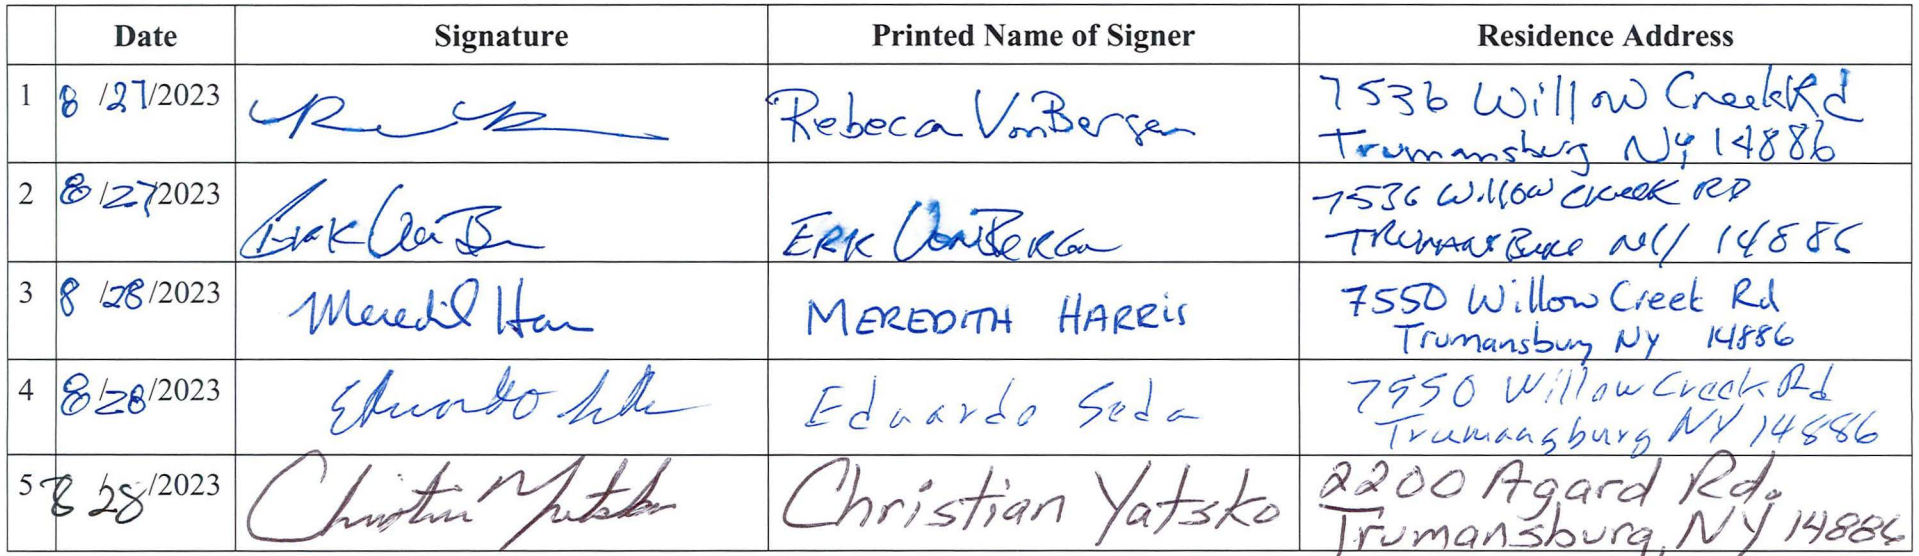 Date Signature Printed Name of Signer Residence Address
1 8/27/2023 Rebeca VonBergen 7536 Willow Creek Rd
Trumansburg NY 14886
2 8/27/2023 Erik VonB ERK VonBERGen 7536 Willow CREEK RD
TRUMANSBURG NY 14886
3 8/28/2023 Meredith Harris MEREDITH HARRIS 7550 Willow Creek Rd
Trumansburg NY 14886
4 8/28/2023 Eduardo Seda Eduardo Seda 7550 Willow Creek Rd
Trumansburg NY 14886
5 8/28/2023 Christian Yatsko Christian Yatsko 2200 Agard Rd.
Trumansburg, NY 14886